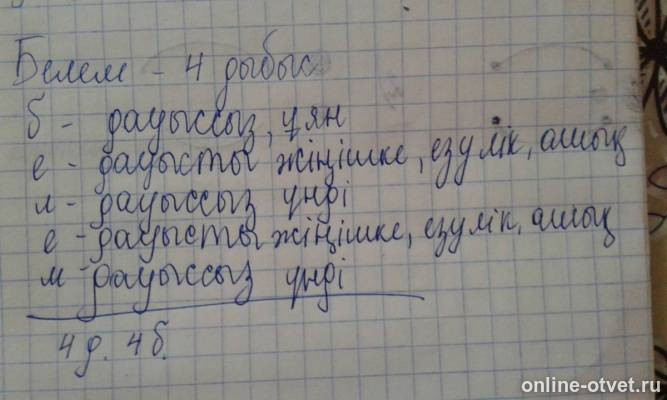 Белем - 4 дыбыс
б - дауыссыз, ұян
е - дауысты жіңішке, езулік, ашық
л - дауыссыз үнді
е - дауысты жіңішке, езулік, ашық
м - дауыссыз үнді
4 д. 4 б.
online-otvet.ru